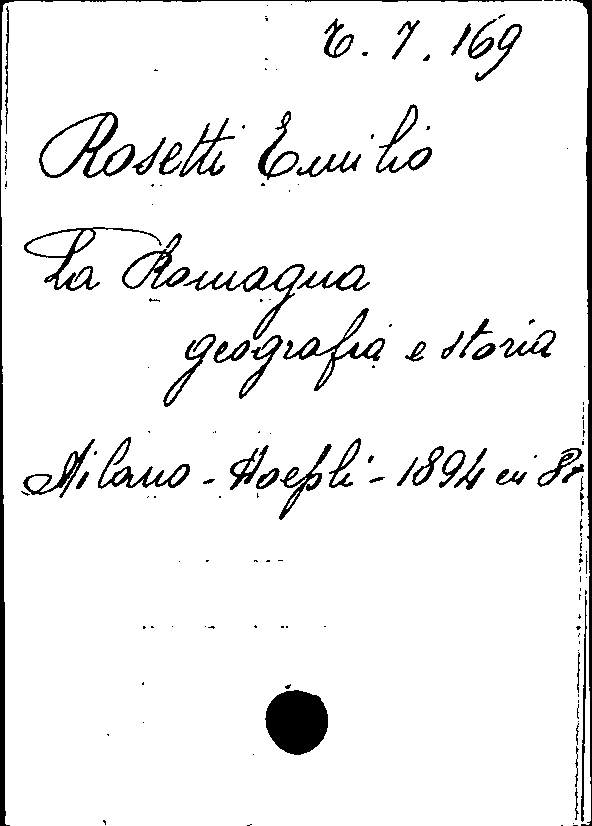 7. 169
Rosetti Emilio
La Romagna
geografia e storia
Milano - Hoepli - 1894 in 8º